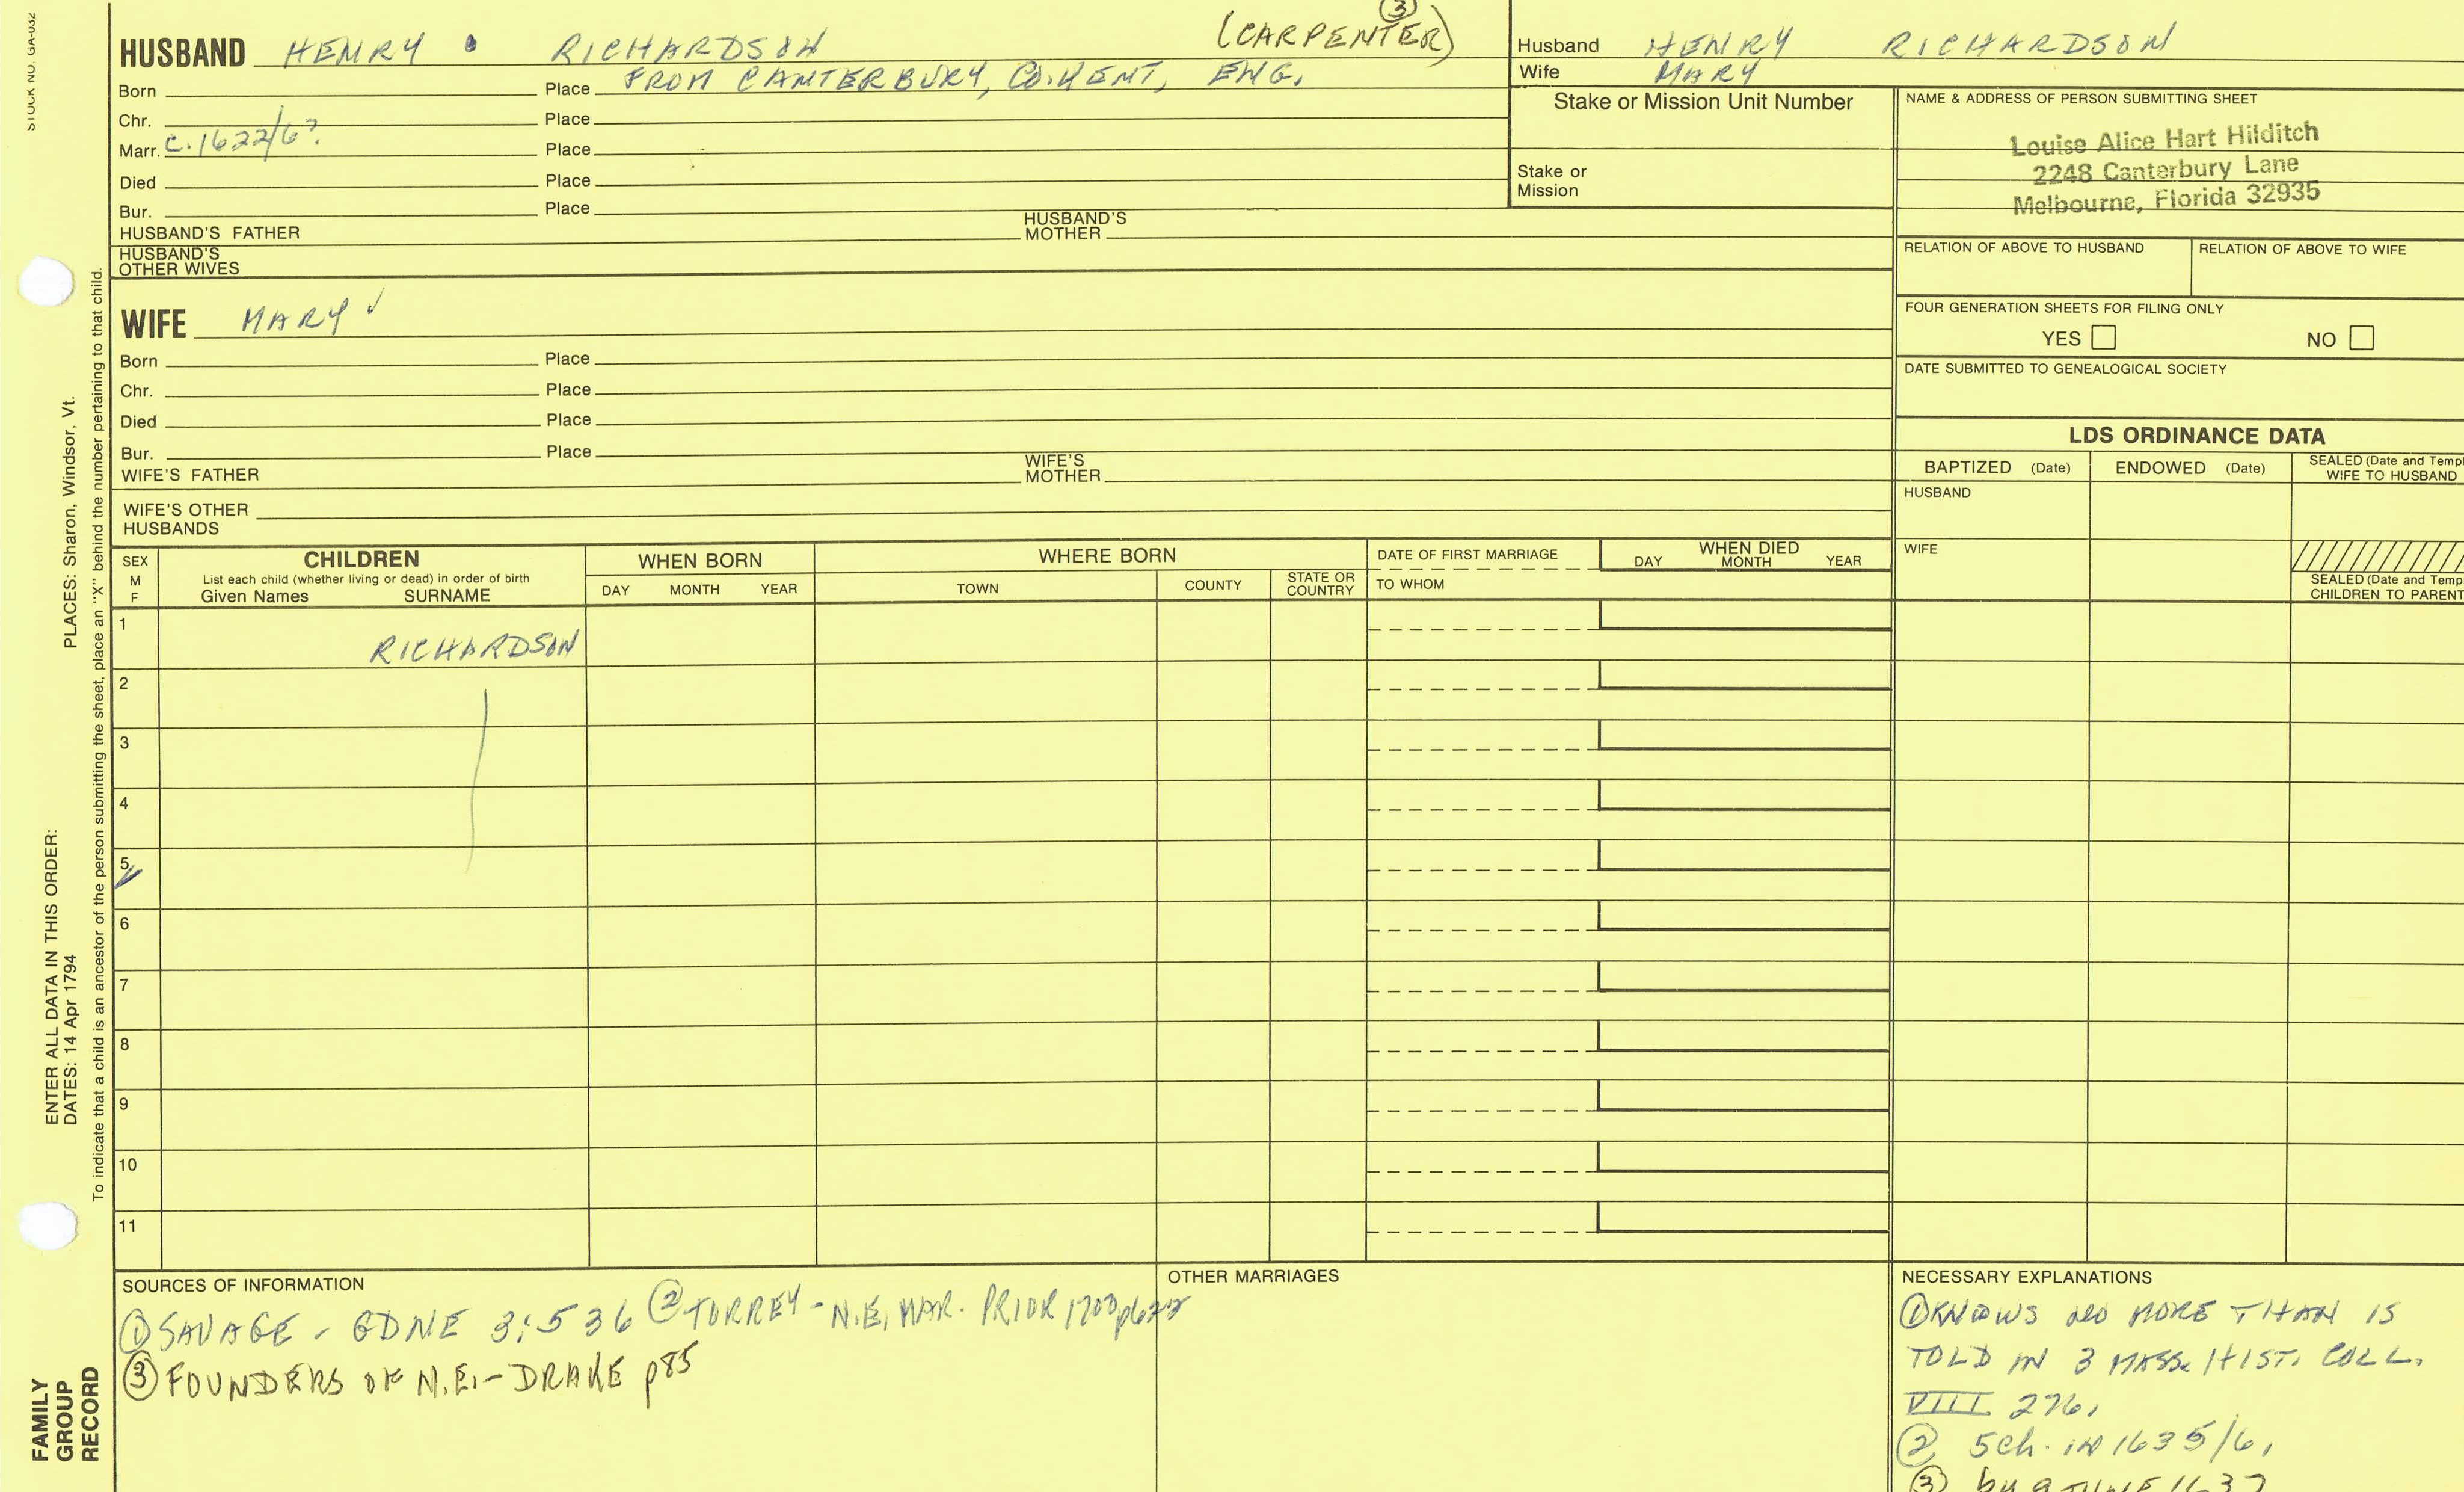 STOCK NO. GA-032
PLACES: Sharon, Windsor, Vt.
ENTER ALL DATA IN THIS ORDER:
DATES: 14 Apr 1794
To indicate that a child is an ancestor of the person submitting the sheet, place an "X" behind the number pertaining to that child.
FAMILY
GROUP
RECORD
③
HUSBAND HENRY RICHARDSON (CARPENTER)
Born Place FROM CANTERBURY, CO. KENT, ENG.
Chr. Place
Marr. c. 1622/6? Place
Died Place
Bur. Place
HUSBAND'S FATHER HUSBAND'S MOTHER
HUSBAND'S
OTHER WIVES
WIFE MARY ✓
Born Place
Chr. Place
Died Place
Bur. Place
WIFE'S FATHER WIFE'S MOTHER
WIFE'S OTHER
HUSBANDS
Husband HENRY RICHARDSON
Wife MARY
Stake or Mission Unit Number
Stake or
Mission
NAME & ADDRESS OF PERSON SUBMITTING SHEET
Louise Alice Hart Hilditch
2248 Canterbury Lane
Melbourne, Florida 32935
RELATION OF ABOVE TO HUSBAND RELATION OF ABOVE TO WIFE
FOUR GENERATION SHEETS FOR FILING ONLY
YES NO
DATE SUBMITTED TO GENEALOGICAL SOCIETY
LDS ORDINANCE DATA
BAPTIZED (Date) ENDOWED (Date) SEALED (Date and Templ
WIFE TO HUSBAND
HUSBAND
WIFE
SEALED (Date and Temp
CHILDREN TO PARENT
SEX
M
F
CHILDREN
List each child (whether living or dead) in order of birth
Given Names SURNAME
WHEN BORN
DAY MONTH YEAR
WHERE BORN
TOWN COUNTY STATE OR COUNTRY
DATE OF FIRST MARRIAGE
TO WHOM
WHEN DIED
DAY MONTH YEAR
1 RICHARDSON
2
3
4
5 ✓
6
7
8
9
10
11
SOURCES OF INFORMATION
① SAVAGE - GDNE 3:536 ② TORREY - N.E. MAR. PRIOR 1700
③ FOUNDERS OF N.E. - DRAKE p85
OTHER MARRIAGES
NECESSARY EXPLANATIONS
① KNOWS NO MORE THAN IS
TOLD IN 3 MASS. HIST. COLL.
VIII 276.
② 5ch. in 1635/6.
③ by 9 JUNE 1637